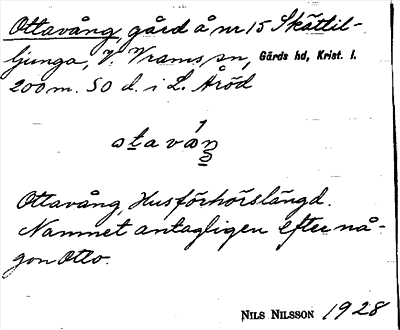 Ottavång, gård å nr 15 Skättil-
ljunga, V. Vrams sn, Gärds hd, Krist. l.
200 m. SO d. i L. Aröd
1
atavaŋ
Ottavång, Husförhörslängd.
Namnet antagligen efter nå-
gon Otto.
NILS NILSSON 1928